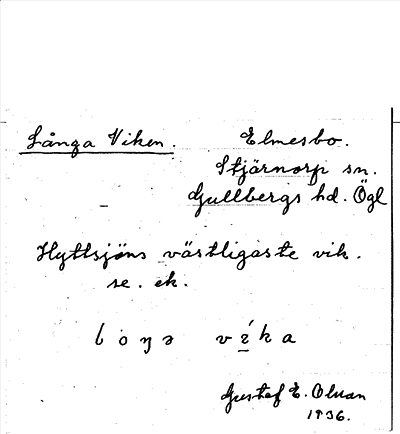 Långa Viken.
Elmesbo.
Stjärnorp sn.
Gullbergs hd. Ögl
Hyttsjöns västligaste vik.
se. ek.
Gustaf E. Olsson
1936.